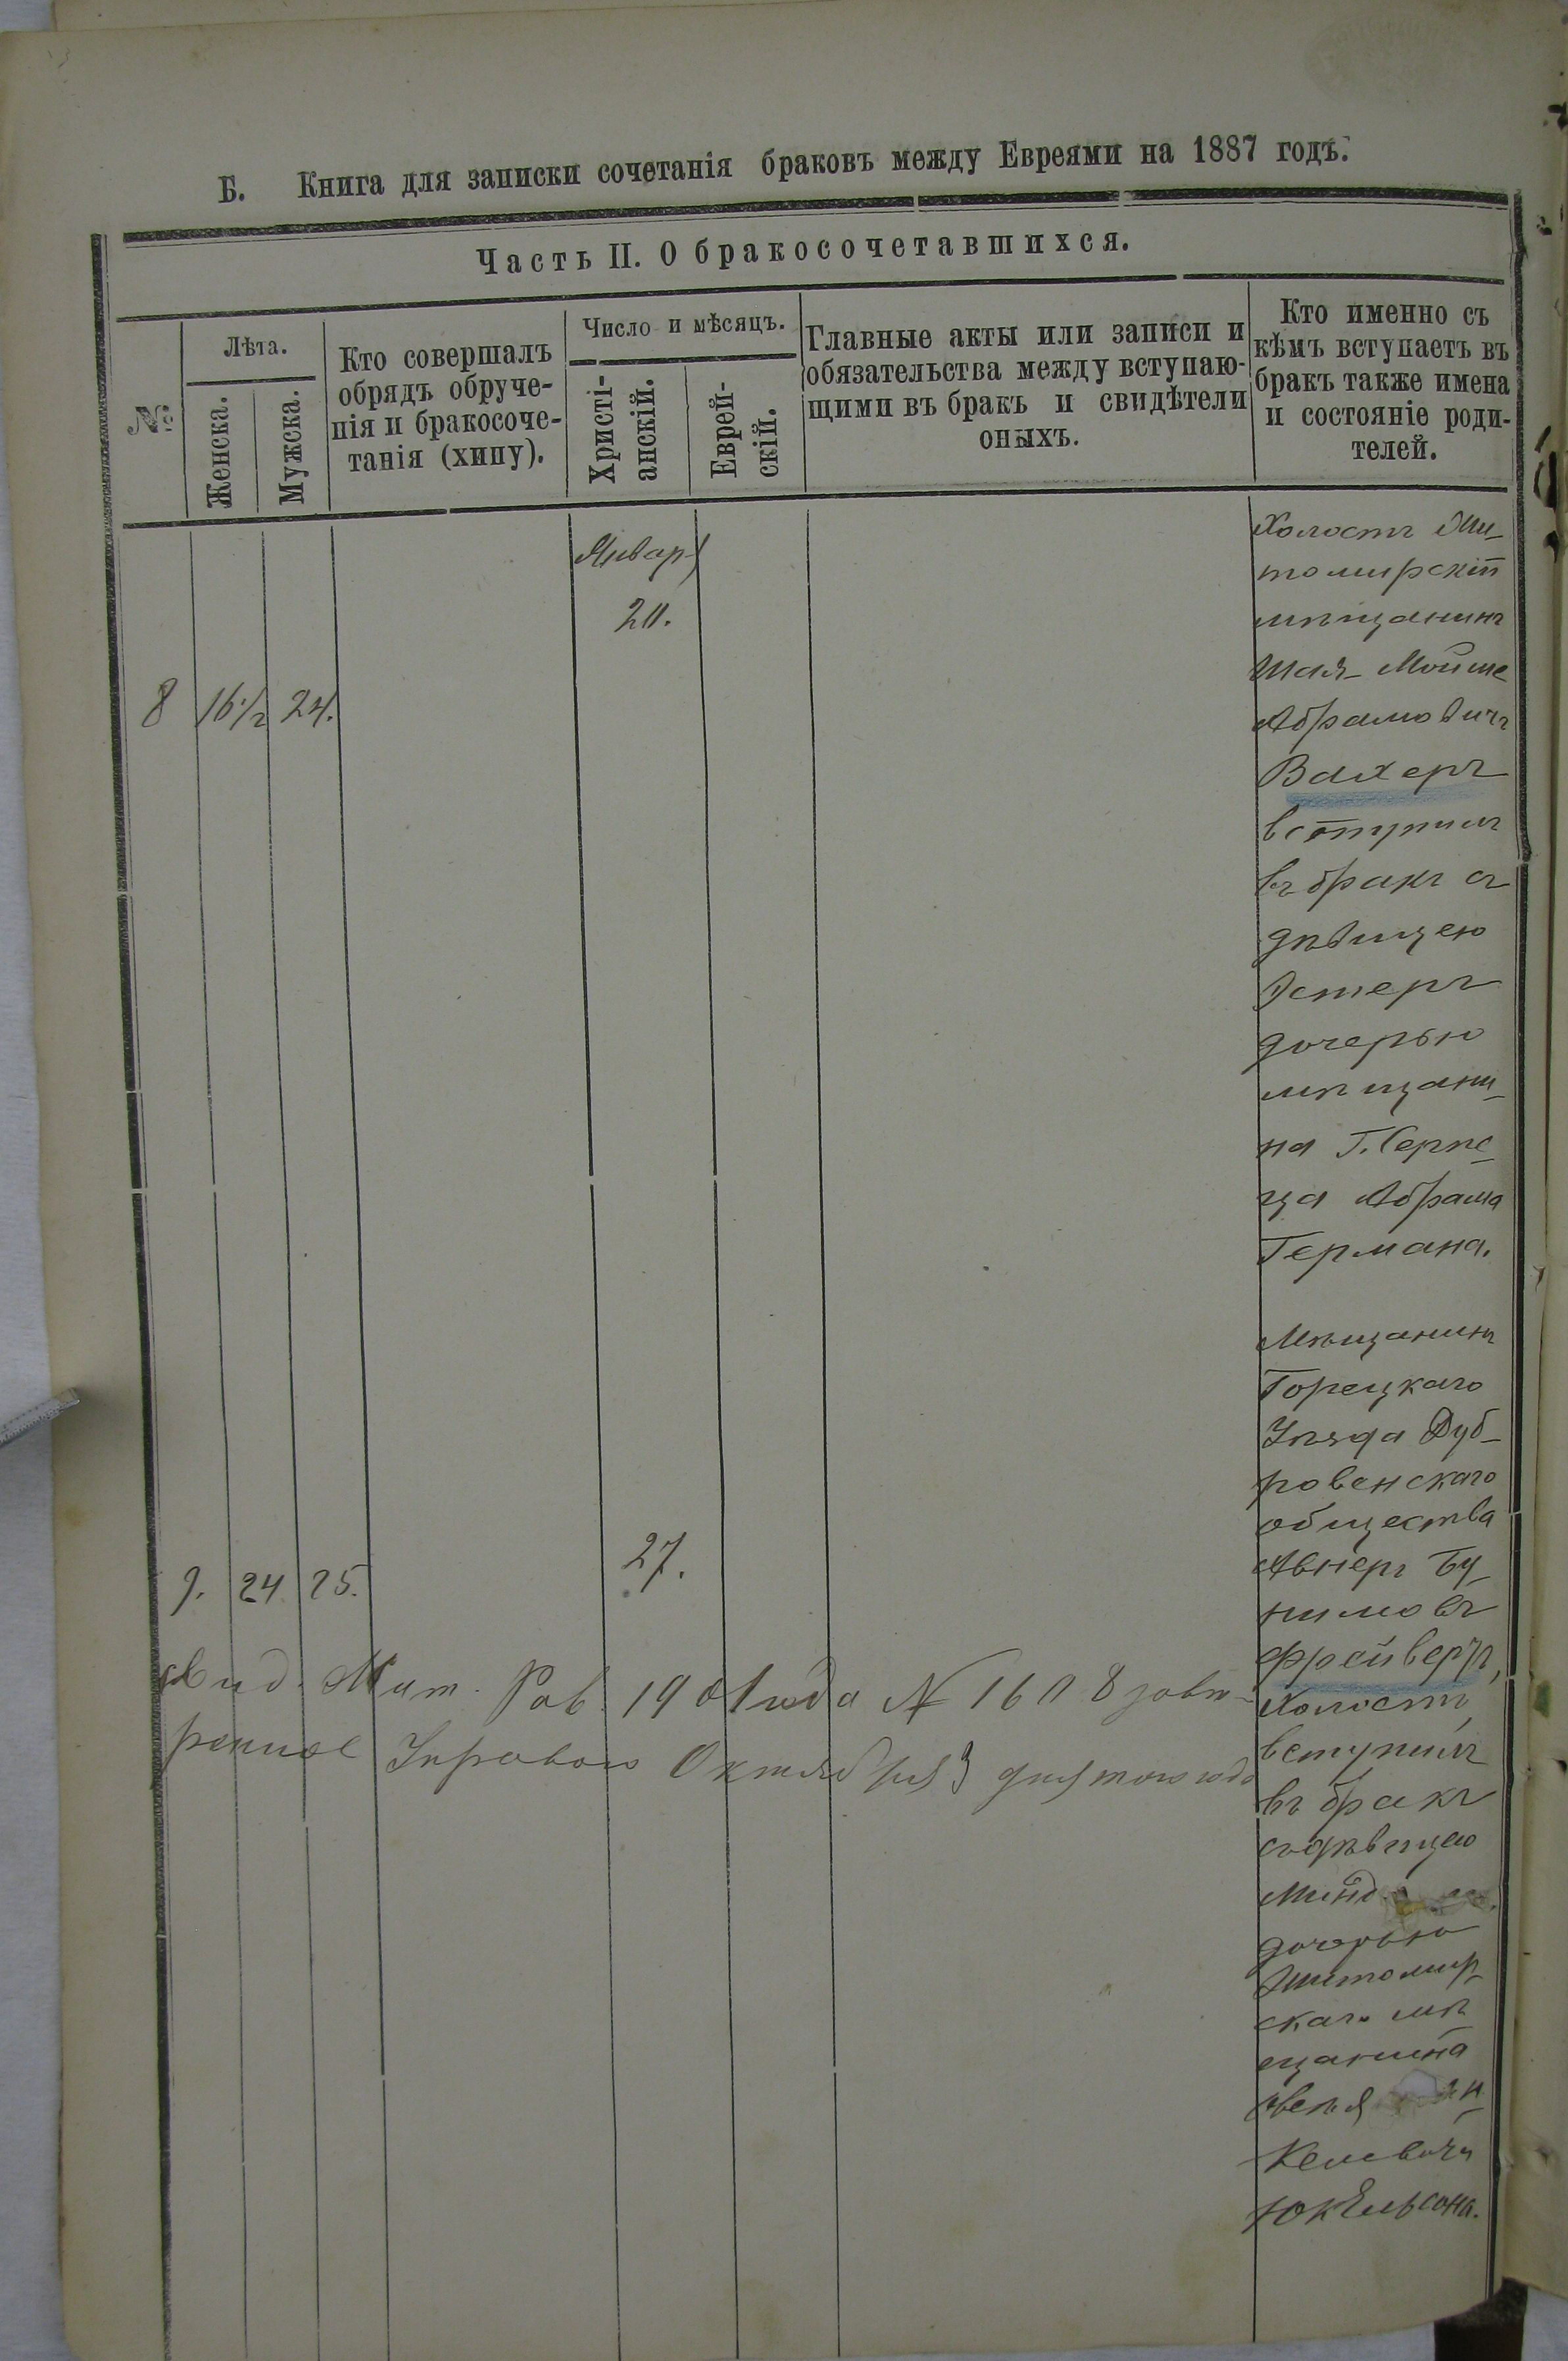 Б. Книга для записки сочетанія браковъ между Евреями на 1887 годъ.
Часть II. О бракосочетавшихся.
№
Лѣта.
Женска.
Мужска.
Кто совершалъ
обрядъ обруче-
нія и бракосоче-
танія (хипу).
Число и мѣсяцъ.
Христі-
анскій.
Еврей-
скій.
Главные акты или записи и
обязательства между вступаю-
щими въ бракъ и свидѣтели
оныхъ.
Кто именно съ
кѣмъ вступаетъ въ
бракъ также имена
и состояніе роди-
телей.
8 16½ 24.
Январ
20.
Холостъ Жи-
томирскій
мѣщанинъ
Шая-Мойше
Абрамовичъ
Вахеръ
вступилъ
въ бракъ съ
дѣвицею
Эстеръ
дочерью
мѣщани-
на Г. Серпе-
ца Абрама
Германа.
9. 24 25.
27.
Мѣщанинъ
Горецкаго
Уѣзда Дуб-
ровенскаго
общества
Авнеръ Бу-
нимовъ
Фрейверъ,
Холостъ,
вступилъ
въ бракъ
съ дѣвицею
дочерью
Житомир-
скаго мѣ
щанина
Келевича
Юкельсона.
Жит. Рав. 1901 года № 1608
Управою Октября 3 дня того года